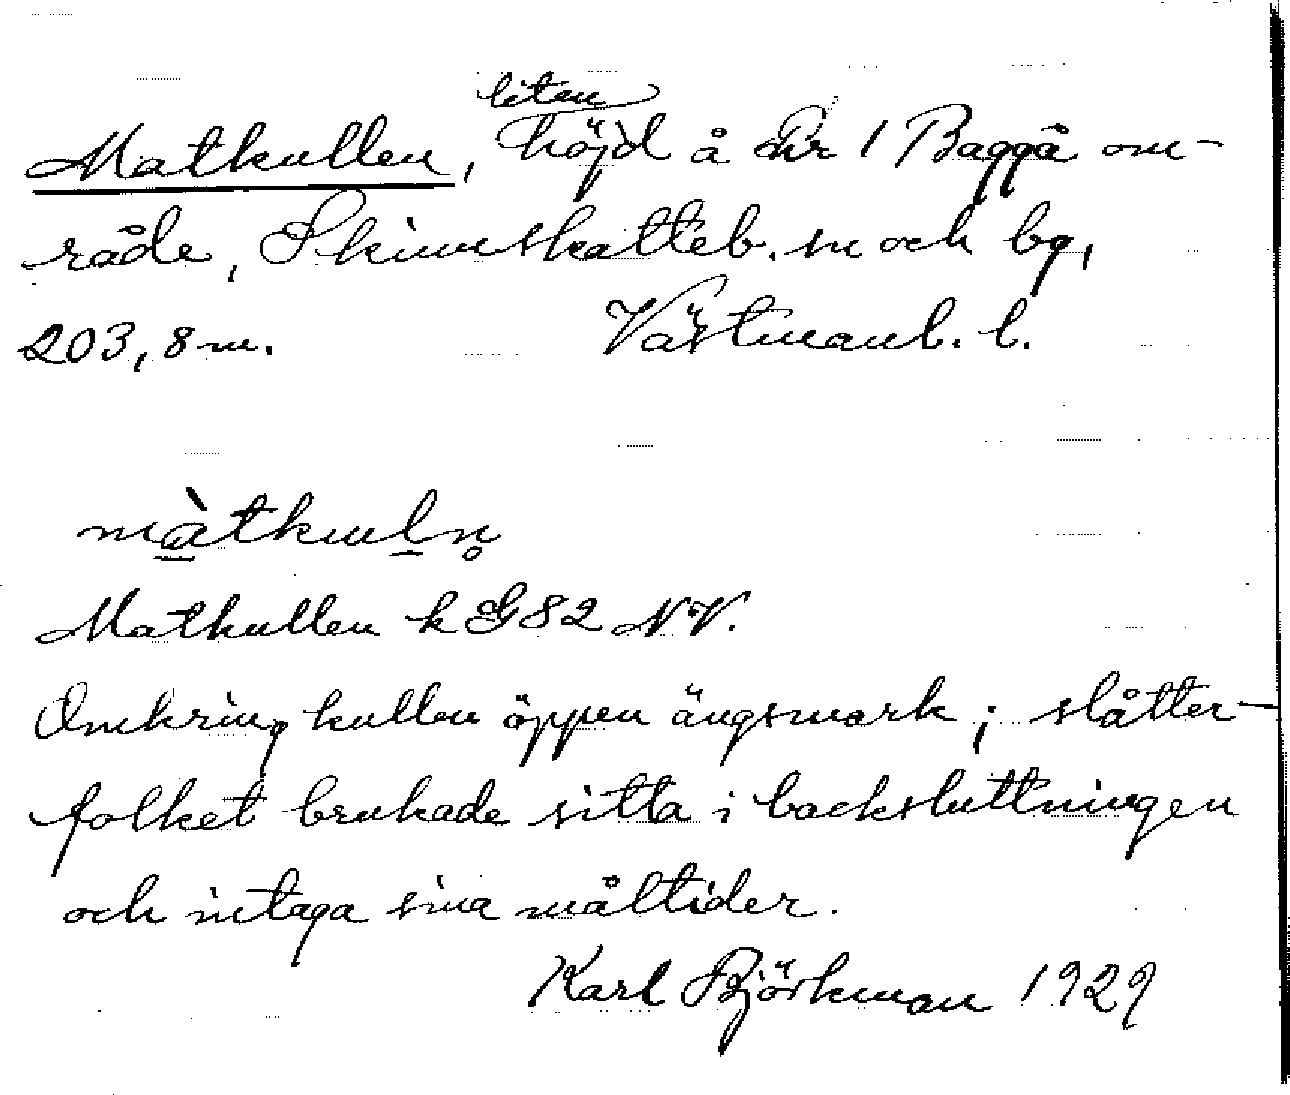 Matkullen, liten höjd å Nr 1 Baggå om-
råde, Skinnskatteb. sn och bg,
203,8 m. Västmanl. l.
màtkuln̥
Matkullen k G82 NV.
Omkring kullen öppen ängsmark; slåtter-
folket brukade sitta i backsluttningen
och intaga sina måltider.
Karl Björkman 1929